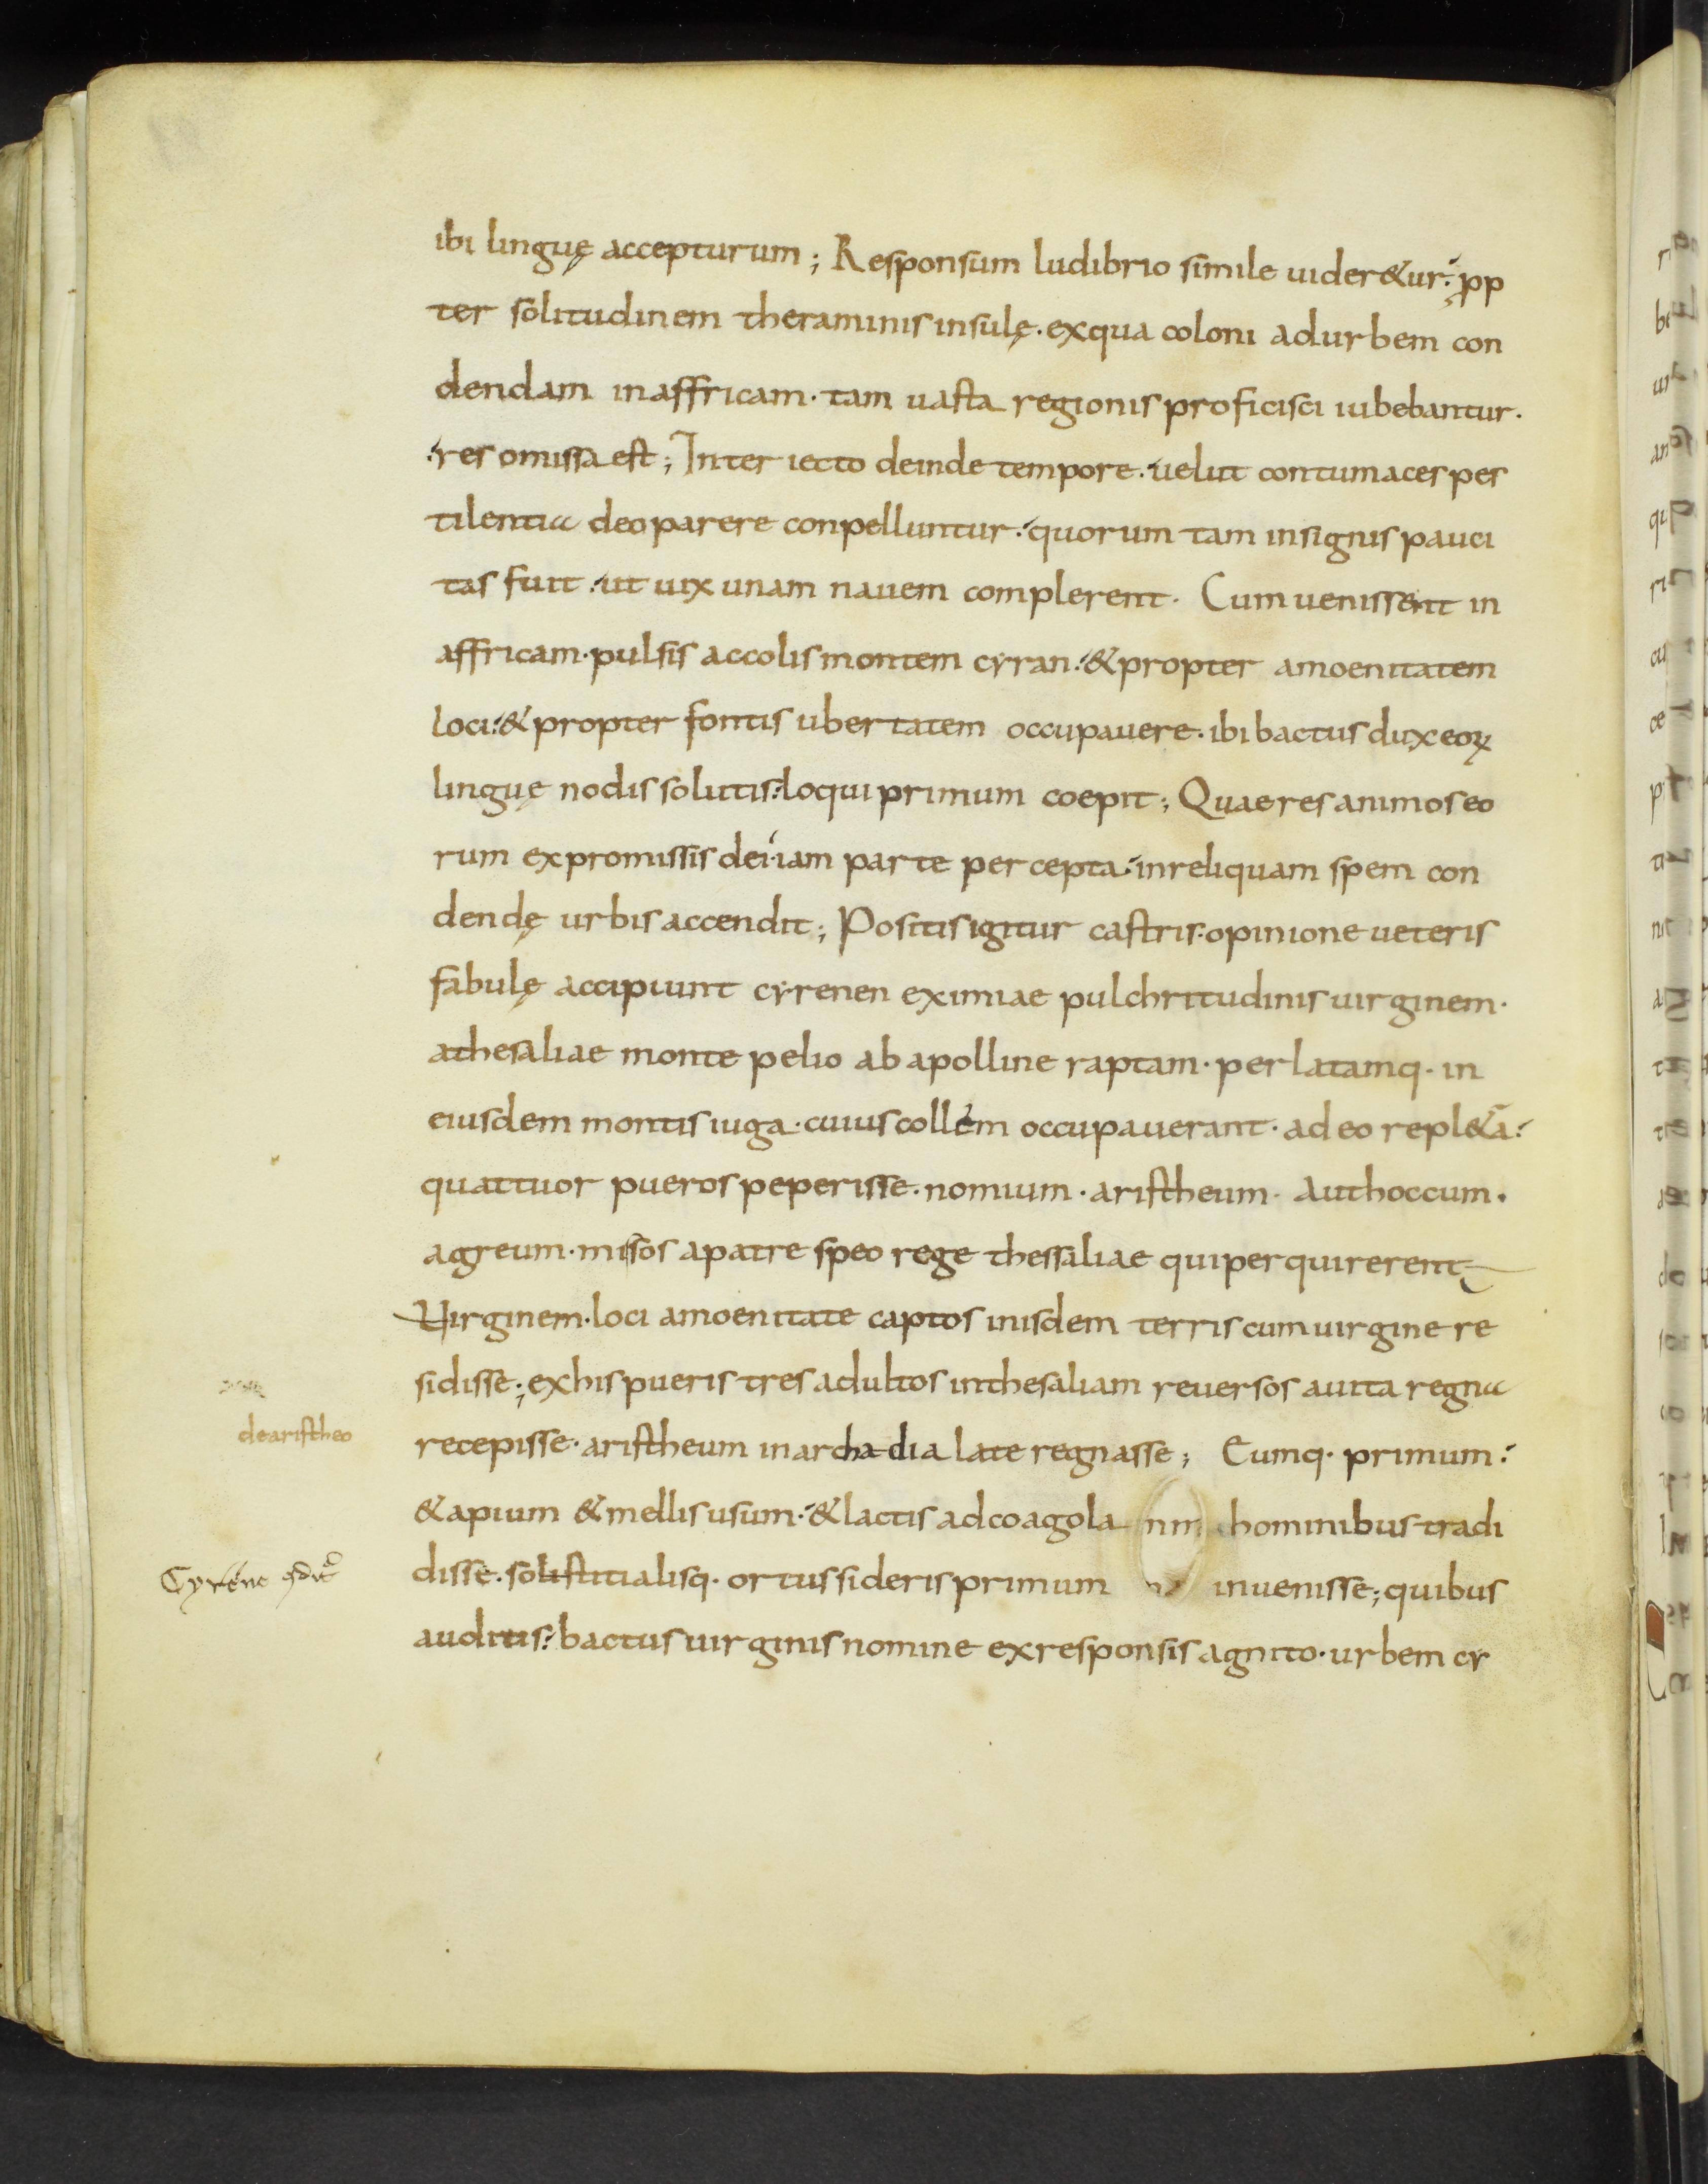 ibi linguę accepturum; Responsum ludibrio simile uider&ur: ꝓp
ter solitudinem theraminis insulę. exqua coloni adurbem con
dendam inaffricam. tam uasta regionis proficisci iubebantur.
res omissa est; Inter iecto deinde tempore. uelut contumaces pes
tilentia deo parere conpelluntur. quorum tam insignis pauci
tas fuit. ut uix unam nauem complerent. Cum uenissent in
affricam. pulsis accolis montem cyran. & propter amoenitatem
loci. & propter fontis ubertatem occupauere. ibi bactus dux eoꝝ
linguę nodis solutis. loqui primum coepit; Quae res animos eo
rum expromissis dei. iam parte per cepta. inreliquam spem con
dendę urbis accendit; Positis igitur castris. opinione ueteris
fabulę accipiunt cyrenen eximiae pulchritudinis uirginem.
athesaliae monte pelio ab apolline raptam. perlatamq. in
eiusdem montis iuga. cuius collem occupauerant. adeo repl&ā.
quattuor pueros peperisse. nomium. aristheum. authoccum.
agreum. misos apatre speo rege thessaliae qui perquirerent
Uirginem. loci amoenitate captos inisdem terris cum uirgine re
sidisse; exhis pueris tres adultos inthesaliam reuersos auita regna
recepisse. aristheum inarchadia late regnasse; Eumq. primum.
dearistheo
& apium & mellis usum. & lactis adcoagola hominibus tradi
disse. solistitialisq. ortus sideris primum inuenisse; quibus
Cyrene
auditis. bactus uirginis nomine exresponsis agnito. urbem cy